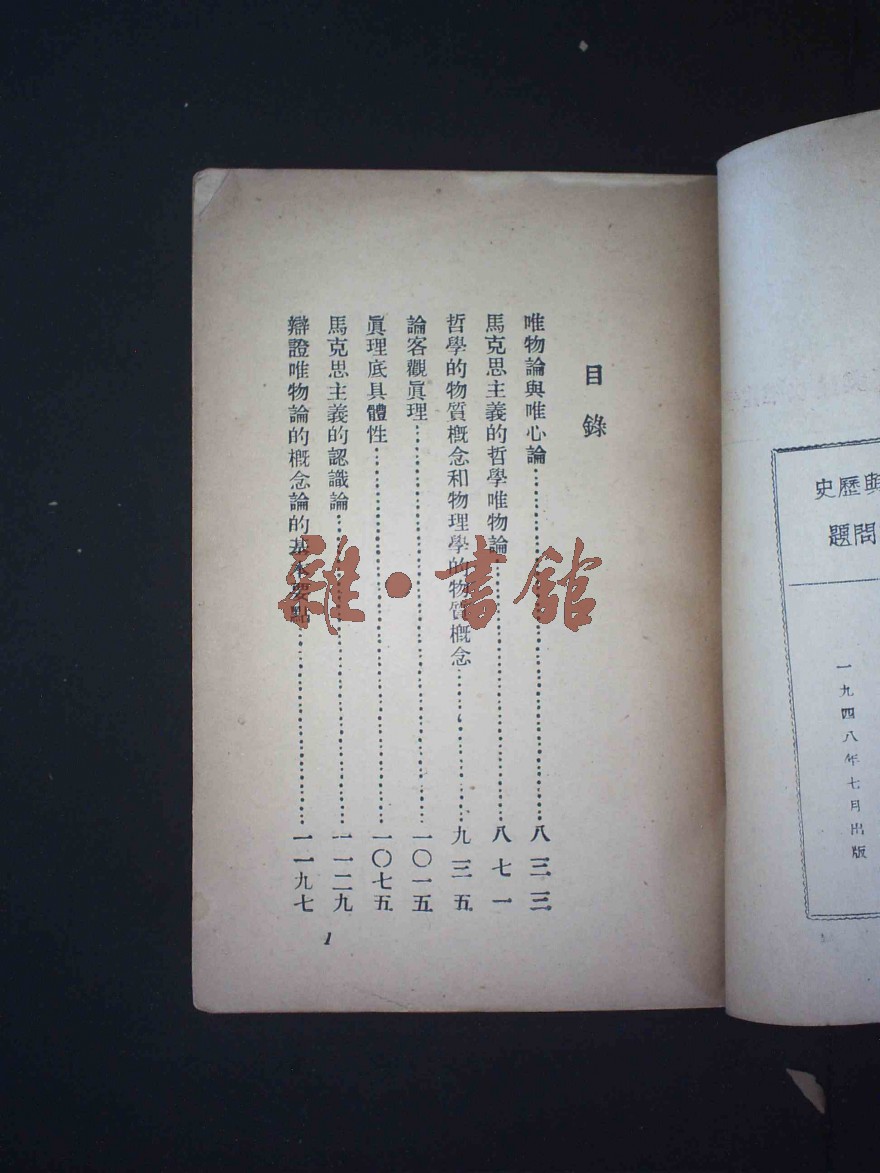 目錄
唯物論與唯心論……八三三
馬克思主義的哲學唯物論……八七一
哲學的物質概念和物理學的物質概念……九三五
論客觀眞理……一〇一五
眞理底具體性……一〇七五
馬克思主義的認識論……一一二九
辯證唯物論的概念論的基本要點……一一九七
1
雜·書館
與歷史
問題
一九四八年七月出版